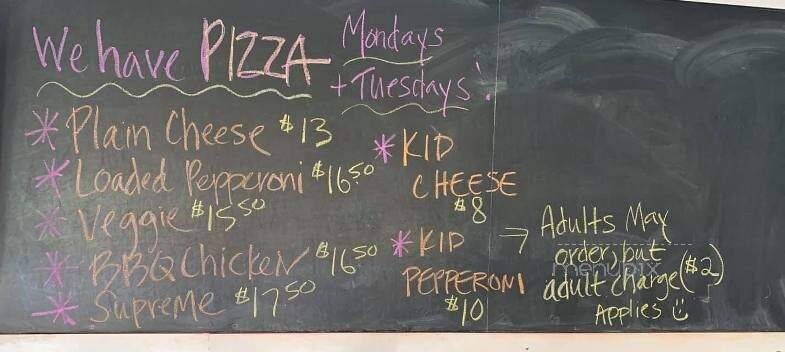 We have PIZZA Mondays
+ Tuesdays!
* Plain Cheese $13
* Loaded Pepperoni $16.50
* Veggie $15 50
* BBQ Chicken $16 50
* Supreme $17 50
* KID
CHEESE
$8
* KID
PEPPERONI
$10
→ Adults May
order, but
adult charge ($2)
Applies
menupix